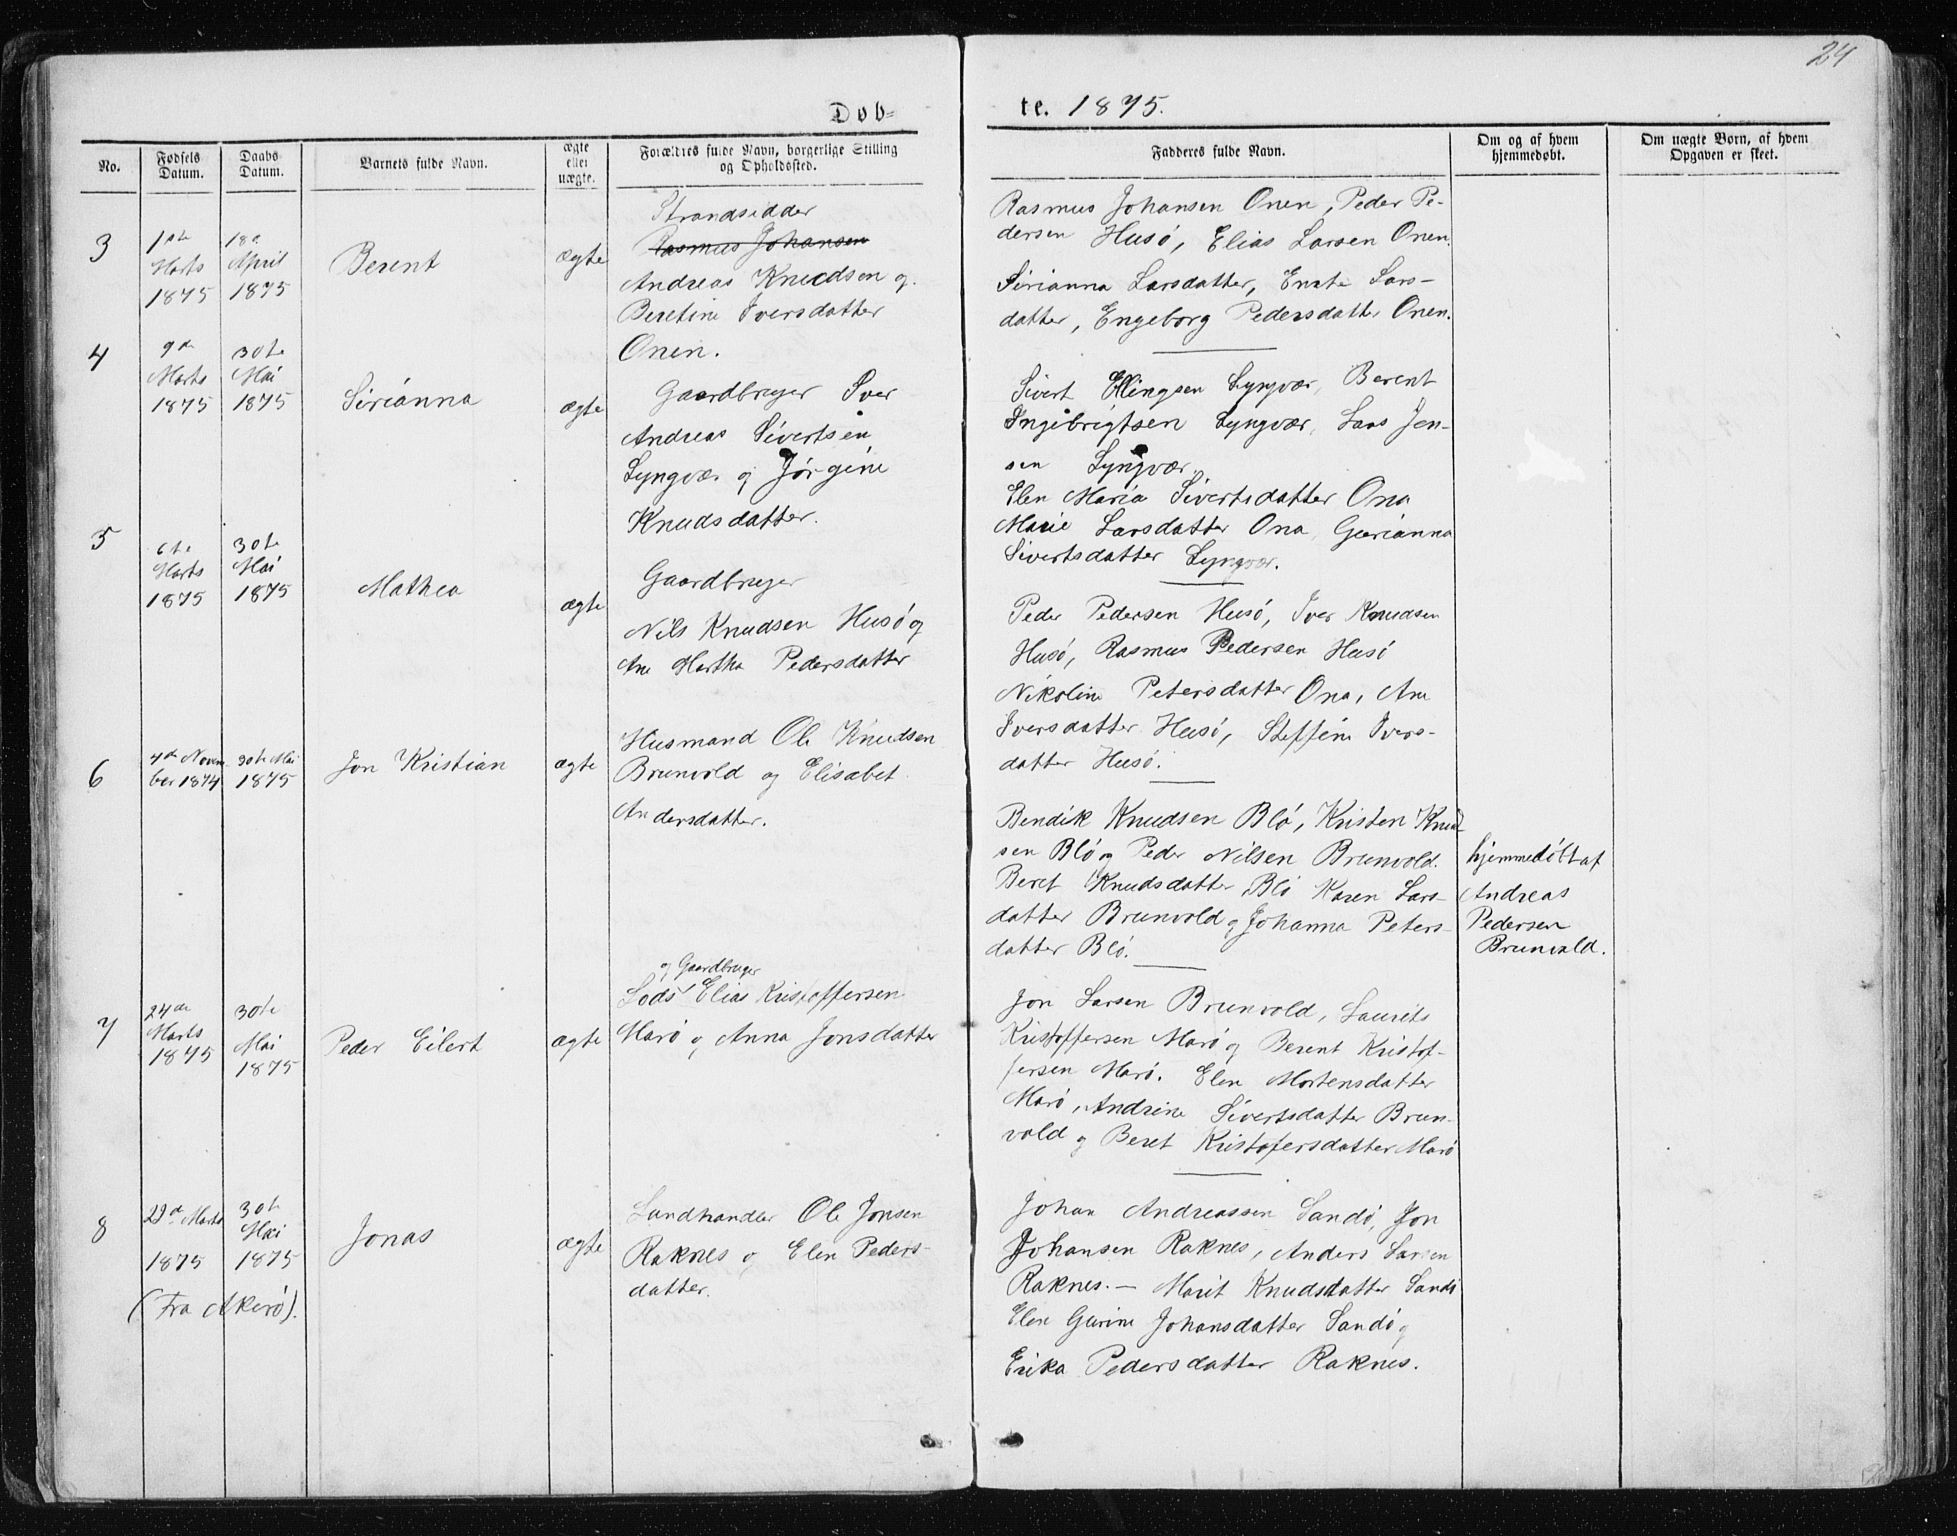 24
Døb=
te. 1875.
No.
Fødsels Datum.
Daabs Datum.
Barnets fulde Navn.
ægte eller uægte.
Forældres fulde Navn, borgerlige Stilling og Opholdssted.
Fadderes fulde Navn.
Om og af hvem hjemmedøbt.
Om uægte Børn, af hvem Opgaven er skeet.
3
1ste
Marts
1875
18de
April
1875
Berent
ægte
Strandsidder
Rasmus Johansen
Andreas Knudsen og
Beretine Iversdatter
Onen.
Rasmus Johansen Onen, Peder Pe-
dersen Husö, Elias Larsen Onen.
Sirianna Larsdatter, Lars-
datter, Engeborg Pedersdatter Onen.
4
9de
Marts
1875
30te
Mai
1875
Sirianna
ægte
Gaardbruger Iver
Andreas Sivertsen
Lyngvær og Jörgine
Knudsdatter.
Sivert Ellingsen Lyngvær, Berent
Ingebrigtsen Lyngvær, Lars Jen-
sen Lyngvær
Elen Maria Sivertsdatter Ona
Marie Larsdatter Ona, Gurianna
Sivertsdatter Lyngvær.
5
6te
Marts
1875
30te
Mai
1875
Mathea
ægte
Gaardbruger
Nils Knudsen Husö og
Ane Martha Pedersdatter
Peder Pedersen Husö, Iver Knudsen
Husö, Rasmus Pedersen Husö
Nikoline Petersdatter Ona, Ane
Iversdatter Husö, Steffine Ivers-
datter Husö.
6
4de Novem
ber 1874
30te Mai
1875
Jon Kristian
ægte
Husmand Ole Knudsen
Brunvold og Elisabet
Andersdatter.
Bendik Knudsen Blö, Kristen Knud
sen Blö og Peder Nilsen Brunvold.
Beret Knudsdatter Blö Karen Lars-
datter Brunvold og Johanna Peters-
datter Blö.
hjemmedöbt af
Andreas
Pedersen
Brunvold.
7
24de
Marts
1875
30te
Mai
1875
Peder Eilert
ægte
og Gaardbruger
Lods Elias Kristoffersen
Marö og Anna Jonsdatter
Jon Larsen Brunvold, Laurits
Kristoffersen Marö og Berent Kristof-
fersen Marö. Elen Mortensdatter
Marö, Andrine Sivertsdatter Brun-
vold og Beret Kristofersdatter Marö
8
29de Marts
1875
30te
Mai
1875
(Fra Akerö).
Jonas
ægte
Landhandler Ole Jonsen
Raknes og Elen Peders-
datter.
Johan Andreassen Sandö, Jon
Johansen Raknes, Anders Larsen
Raknes. — Marit Knudsdatter Sandö
Elen Gurine Johansdatter Sandö og
Erika Pedersdatter Raknes.